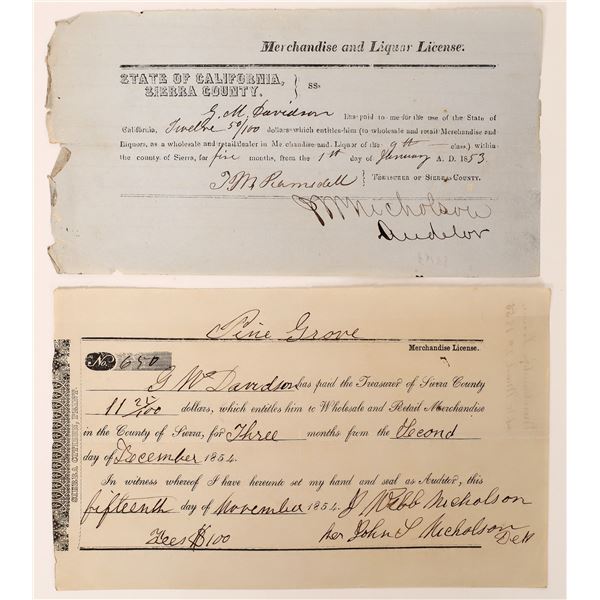 Merchandise and Liquor License.
STATE OF CALIFORNIA,
SIERRA COUNTY.
SS-
G. M. Davidson Has paid to me for the use of the State of
California, Twelve 50/100 dollars which entitles him (to wholesale and retail Merchandise and
Liquors, as a wholesale and retail dealer in Merchandise and Liquor of the 9th class,) within
the county of Sierra, for five months, from the 1st day of January A. D. 1853.
T M Ramsdell TREASURER OF SIERRA COUNTY.
Nicholson
Auditor
Pine Grove
Merchandise License.
No. 650
G Wm Davidson has paid the Treasurer of Sierra County
11 /100 dollars, which entitles him to Wholesale and Retail Merchandise
in the County of Sierra, for Three months from the Second
day of December 1854.
In witness whereof I have hereunto set my hand and seal as Auditor, this
fifteenth day of November 1854. J Webb Nicholson
Fees $1.00 per John S Nicholson
Dept
SIERRA CITIZEN, PRINT.